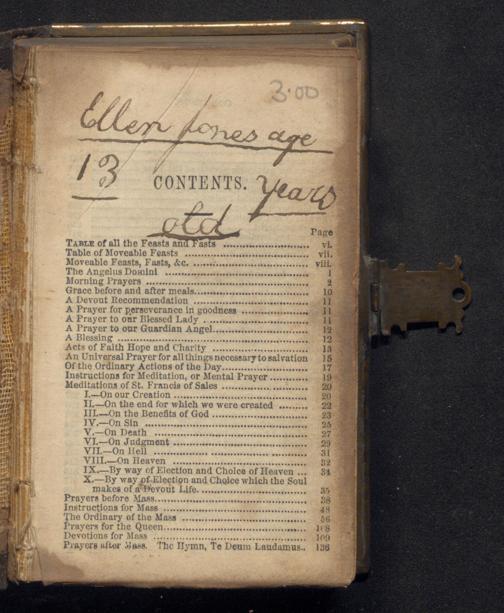 3.00
Ellen Jones age
13
CONTENTS. Years
old
Page
TABLE of all the Feasts and Fasts ........ vi.
Table of Moveable Feasts ........ vii.
Moveable Feasts, Fasts, &c. ........ viii.
The Angelus Domini ........ 1
Morning Prayers ........ 2
Grace before and after meals ........ 10
A Devout Recommendation ........ 11
A Prayer for perseverance in goodness ........ 11
A Prayer to our Blessed Lady ........ 11
A Prayer to our Guardian Angel ........ 12
A Blessing ........ 12
Acts of Faith Hope and Charity ........ 13
An Universal Prayer for all things necessary to salvation 15
Of the Ordinary Actions of the Day ........ 17
Instructions for Meditation, or Mental Prayer ........ 19
Meditations of St. Francis of Sales ........ 20
I.—On our Creation ........ 20
II.—On the end for which we were created ........ 22
III.—On the Benefits of God ........ 23
IV.—On Sin ........ 25
V.—On Death ........ 27
VI.—On Judgment ........ 29
VII.—On Hell ........ 31
VIII.—On Heaven ........ 32
IX.—By way of Election and Choice of Heaven ... 34
X.—By way of Election and Choice which the Soul
makes of a Devout Life ........ 35
Prayers before Mass ........ 38
Instructions for Mass ........ 48
The Ordinary of the Mass ........ 56
Prayers for the Queen ........ 108
Devotions for Mass ........ 109
Prayers after Mass. The Hymn, Te Deum Laudamus.. 136